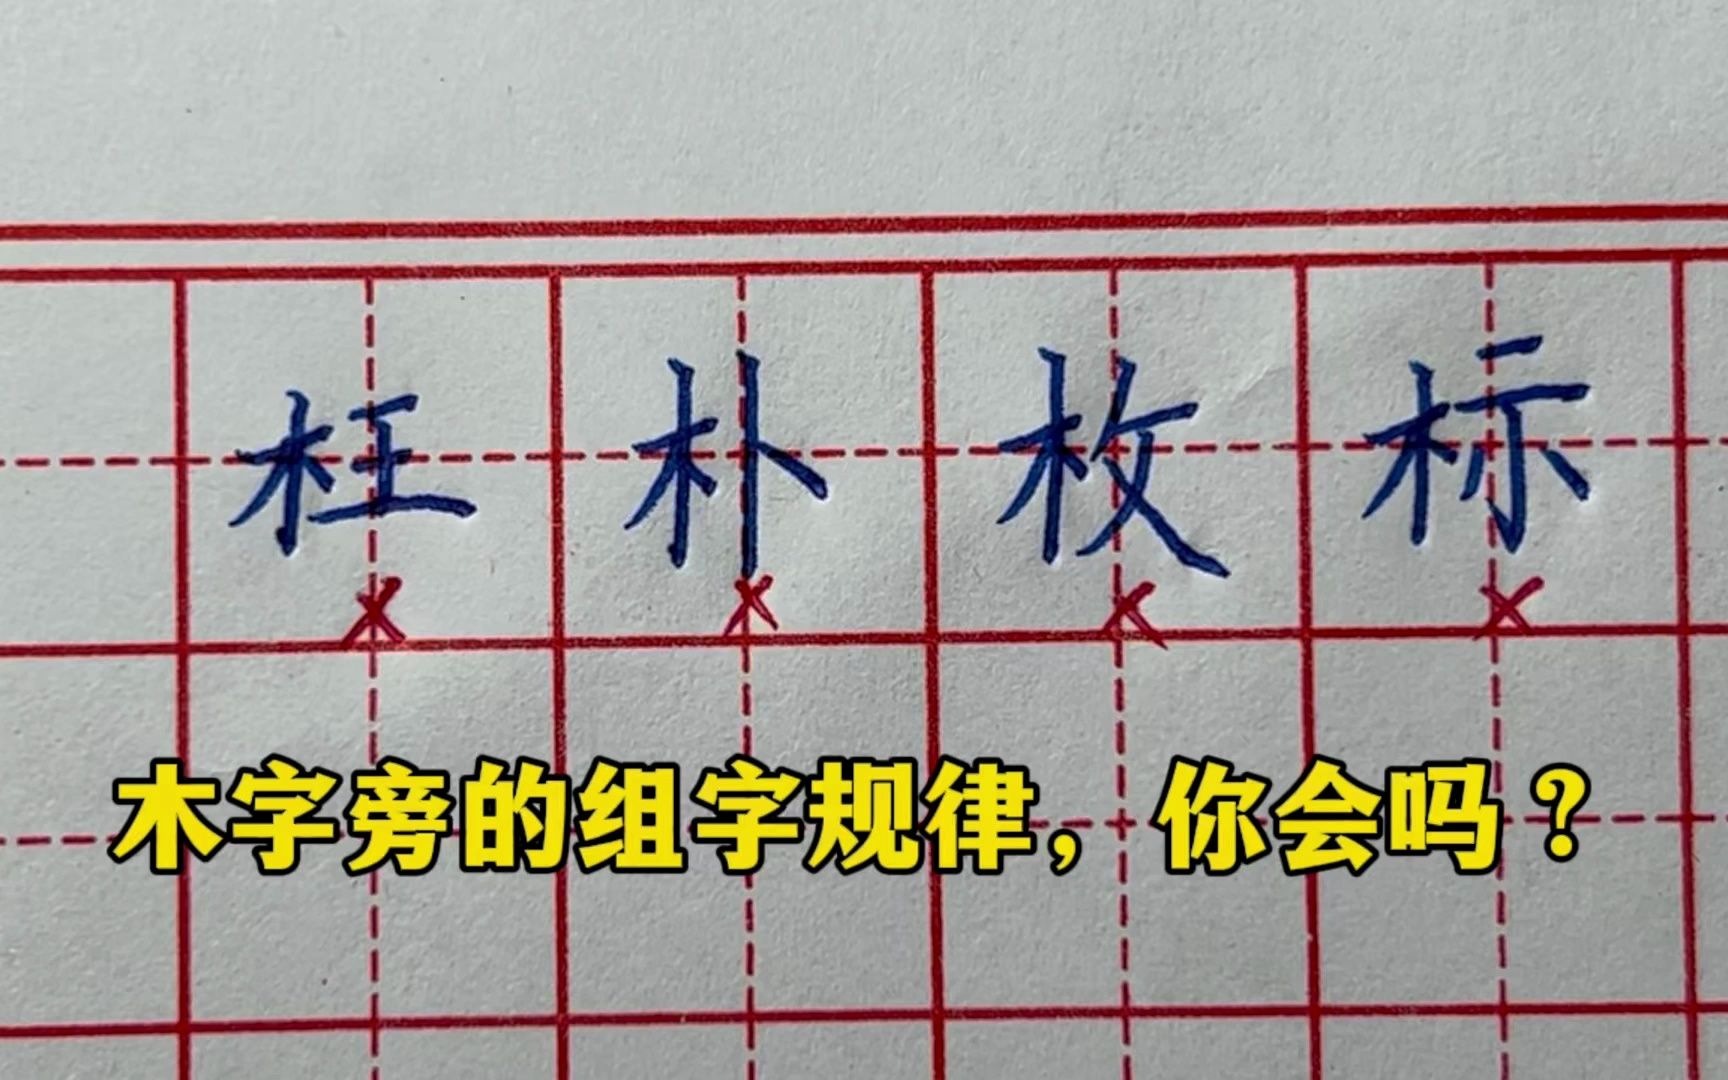 枉朴枚标
木字旁的组字规律，你会吗？